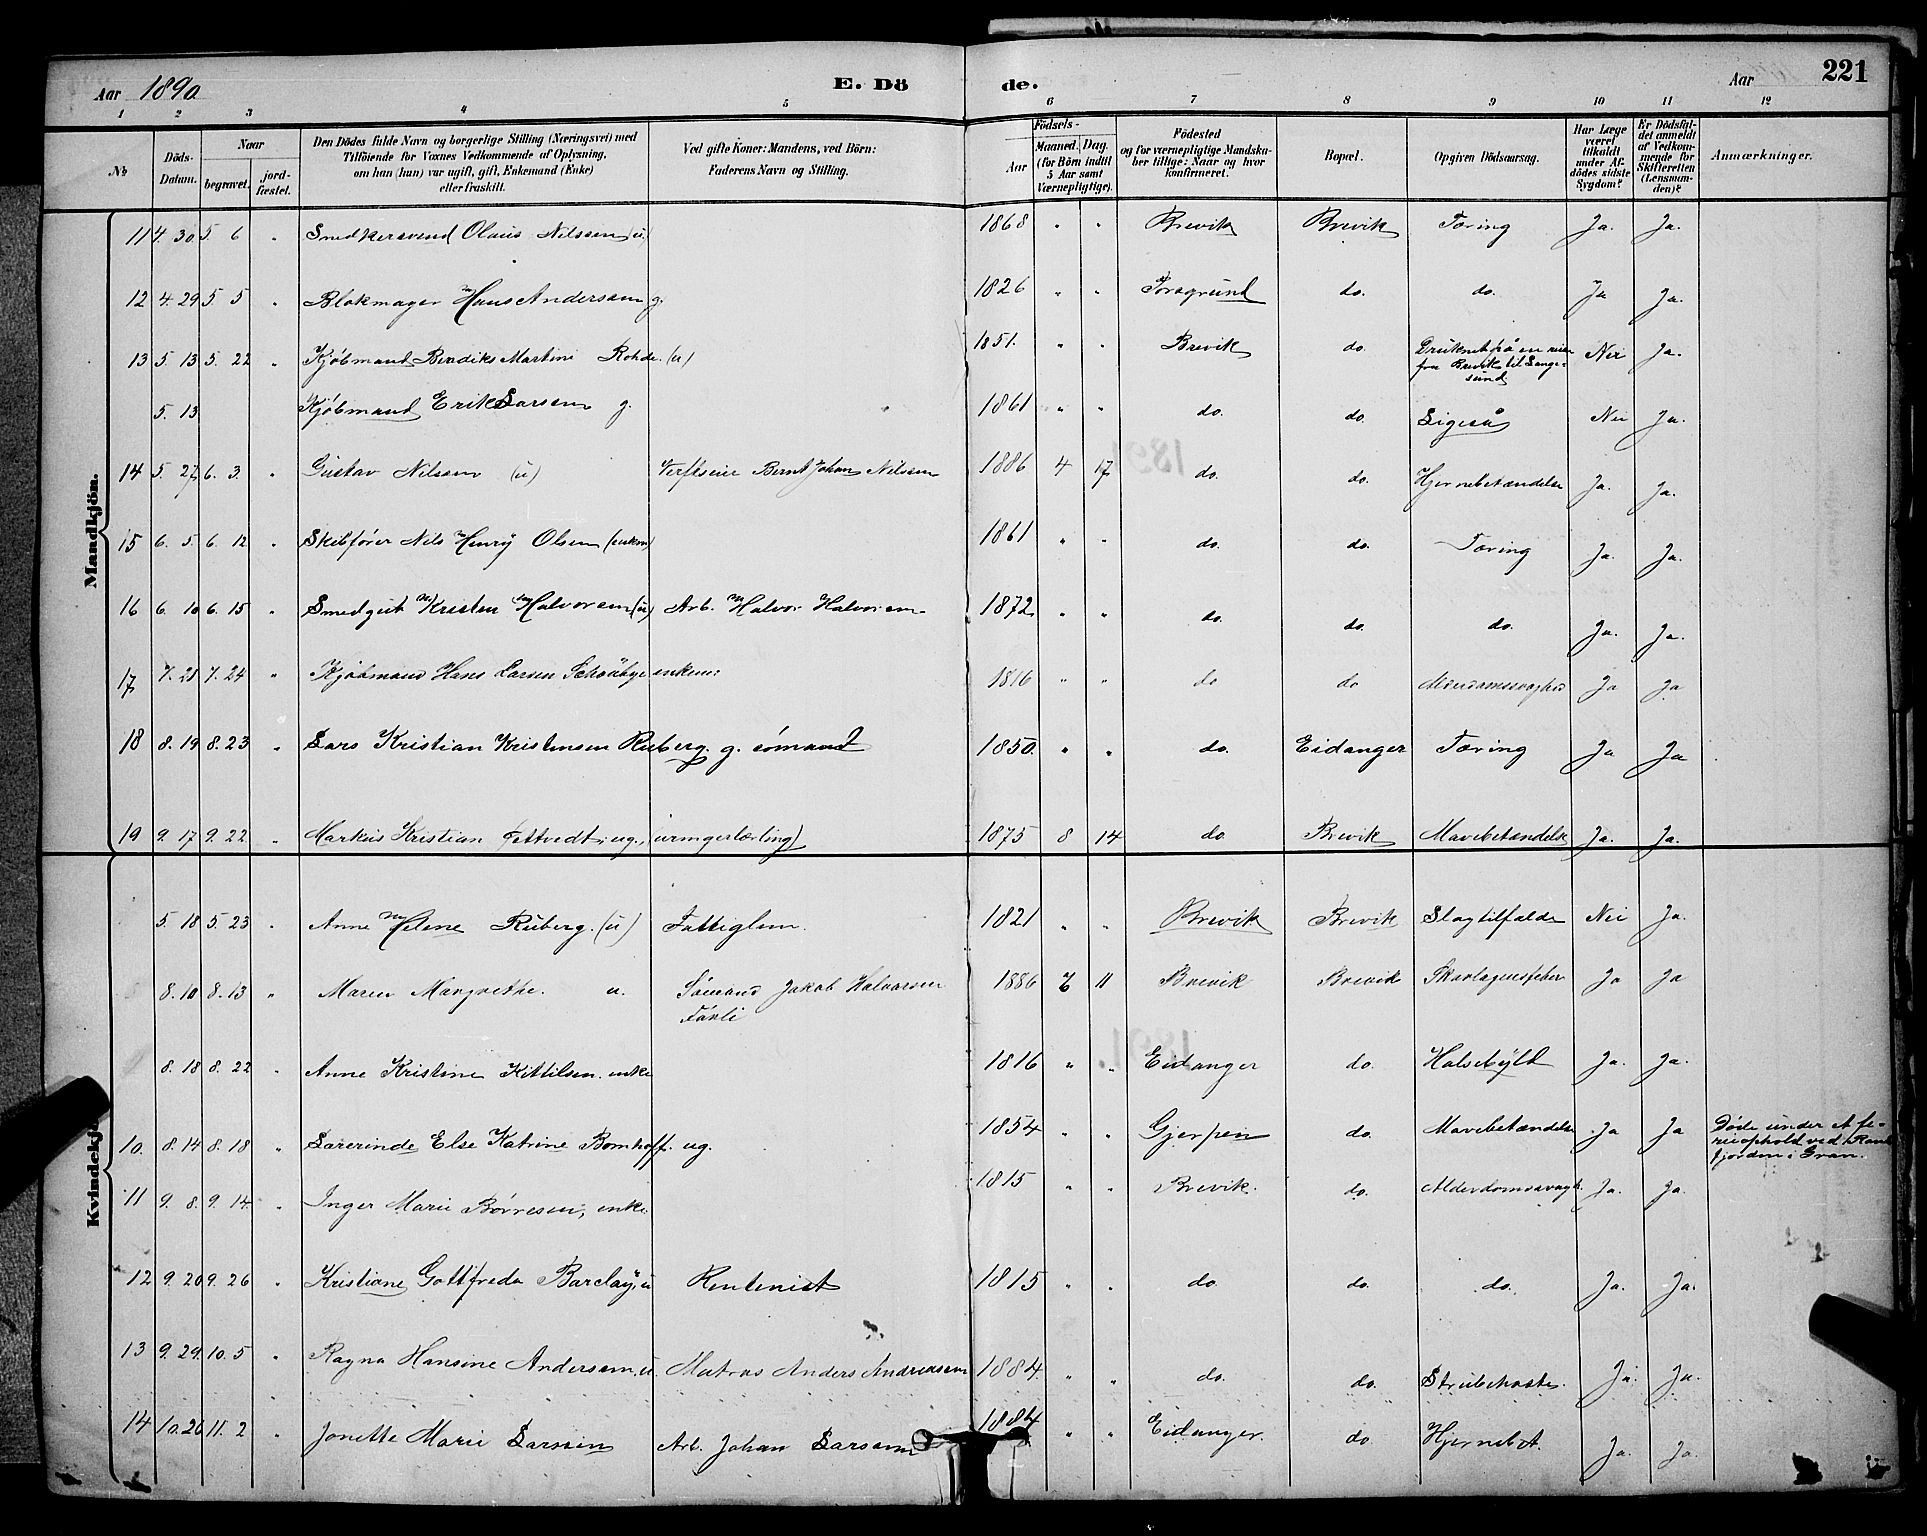 Aar 1890 E. Dö de. Aar 221
1 2 3 4 5 6 7 8 9 10 11 12
№ Döds-Datum. Naar begravet. jord-fæstet. Den Dödes fulde Navn og borgerlige Stilling (Næringsvei) med Tilföiende for Voxnes Vedkommende af Oplysning, om han (hun) var ugift, gift, Enkemand (Enke) eller fraskilt. Ved gifte Koner: Mandens, ved Börn: Faderens Navn og Stilling. Födsels- Aar Maaned. Dag. (for Börn indtil 5 Aar samt Værnepligtige). Födested og for værnepligtige Mandskaber tillige: Naar og hvor konfirmeret. Bopæl. Opgiven Dödsaarsag. Har Læge været tilkaldt under Afdödes sidste Sygdom? Er Dödsfaldet anmeldt af Vedkommende for Skifteretten (Lensmanden)? Anmærkninger.
Mandkjön.
11 4. 30. 5. 6 " Smedkersvend Olaus Nilssen (u) 1868 " " Brevik Brevik Tæring Ja. Ja.
12 4. 29 5 5 " Blokmager Hans Andersen g. 1826 " " Porsgrund do. do. Ja Ja.
13 5. 13 5. 22 " Kjöbmand Bendiks Martini Rohde. (u) 1851. " " Brevik do. Druknet på en reise fra Brevik til Langesund Nei Ja.
5. 13 Kjöbmand Erik Larsen g. 1861 " " do. do. Ligeså Nei Ja.
14 5. 27 6. 3. " Gustav Nilssen (u) Verftseier Bernt Johan Nilssen 1886 4 17 do. do. Hjernebetændelse Ja. Ja.
15 6. 5. 6. 12 " Skibförer Nils Henry Olsen (enkm) 1861 " " do. do. Tæring Ja. Ja.
16 6. 10 6. 15 " Smedgut Kristen Halvorsen (u) Arb. Halvor Halvorsen 1872 " " do. do. do. Ja. Ja.
17 7. 21 7. 24 " Kjöbmand Hans Larsen enkem: 1816 " " do do Alderdomssvaghed Ja Ja
18 8. 19 8. 23 " Lars Kristian Kristensen Ruberg. g. sömand 1850. " " do. Eidanger Tæring Ja Ja
19 9. 17 9. 22 " Markus Kristian Tettvedt, ug., (urmgerlærling) 1875 8 14 do Brevik Mavebetændelse Ja. Ja.
Kvindekjön.
5. 18 5. 23 " Anne Helene Ruberg. (u) Fattiglem. 1821 " " Brevik Brevik Slagtilfælde Nei Ja.
8. 10 8. 13 " Maren Margrethe. u. Sömand Jakob Halvorsen 1886 11 Brevik Brevik Skarlagensfeber Ja Ja
8. 18 8. 22 " Anne Kristine Kittilsen. enke 1816 " " Eidanger do. Halsebyld Ja. Ja.
10. 8. 14 8. 18 " Lærerinde Else Katrine Bomhoff. ug. 1854 " " Gjerpen do. Mavebetændelse Ja Ja Döde under et ferieophold ved Randsfjorden i Gran.
11 9. 8. 9. 14. " Inger Marie Börresen, enke 1815 " " Brevik. do. Alderdomssvagh. Ja. Ja.
12 9. 20 9. 26 " Kristiane Gottfreda Barclay, u Rentenist 1815 " " do. do. do. Ja. Ja.
13 9. 29. 10. 5 " Ragna Hansine Andersen, u. Matros Anders Andreasen 1884 " " do. do. Strubehoste. Ja. Ja.
14 10. 26 11. 2 " Jonette Marie Larssen Arb. Johan Larssen 1884 " " Eidanger. do Hjernebet. Ja. Ja.